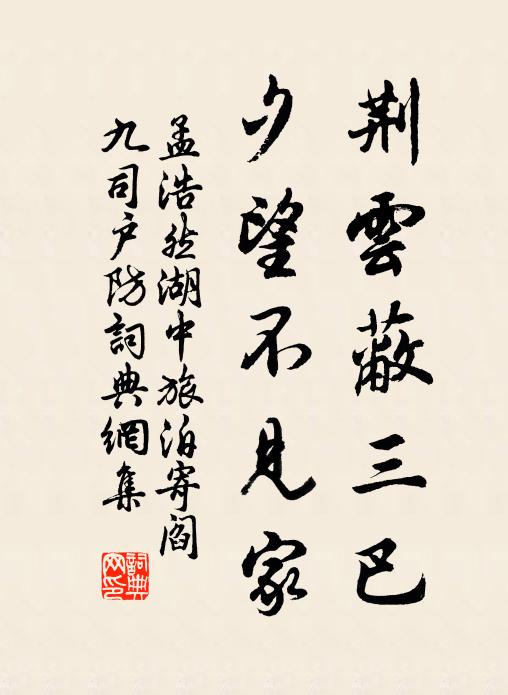 荆雲蔽三巴
夕望不見家
孟浩然湖中旅泊寄閻
九司户防詞典網集
詞典
网印